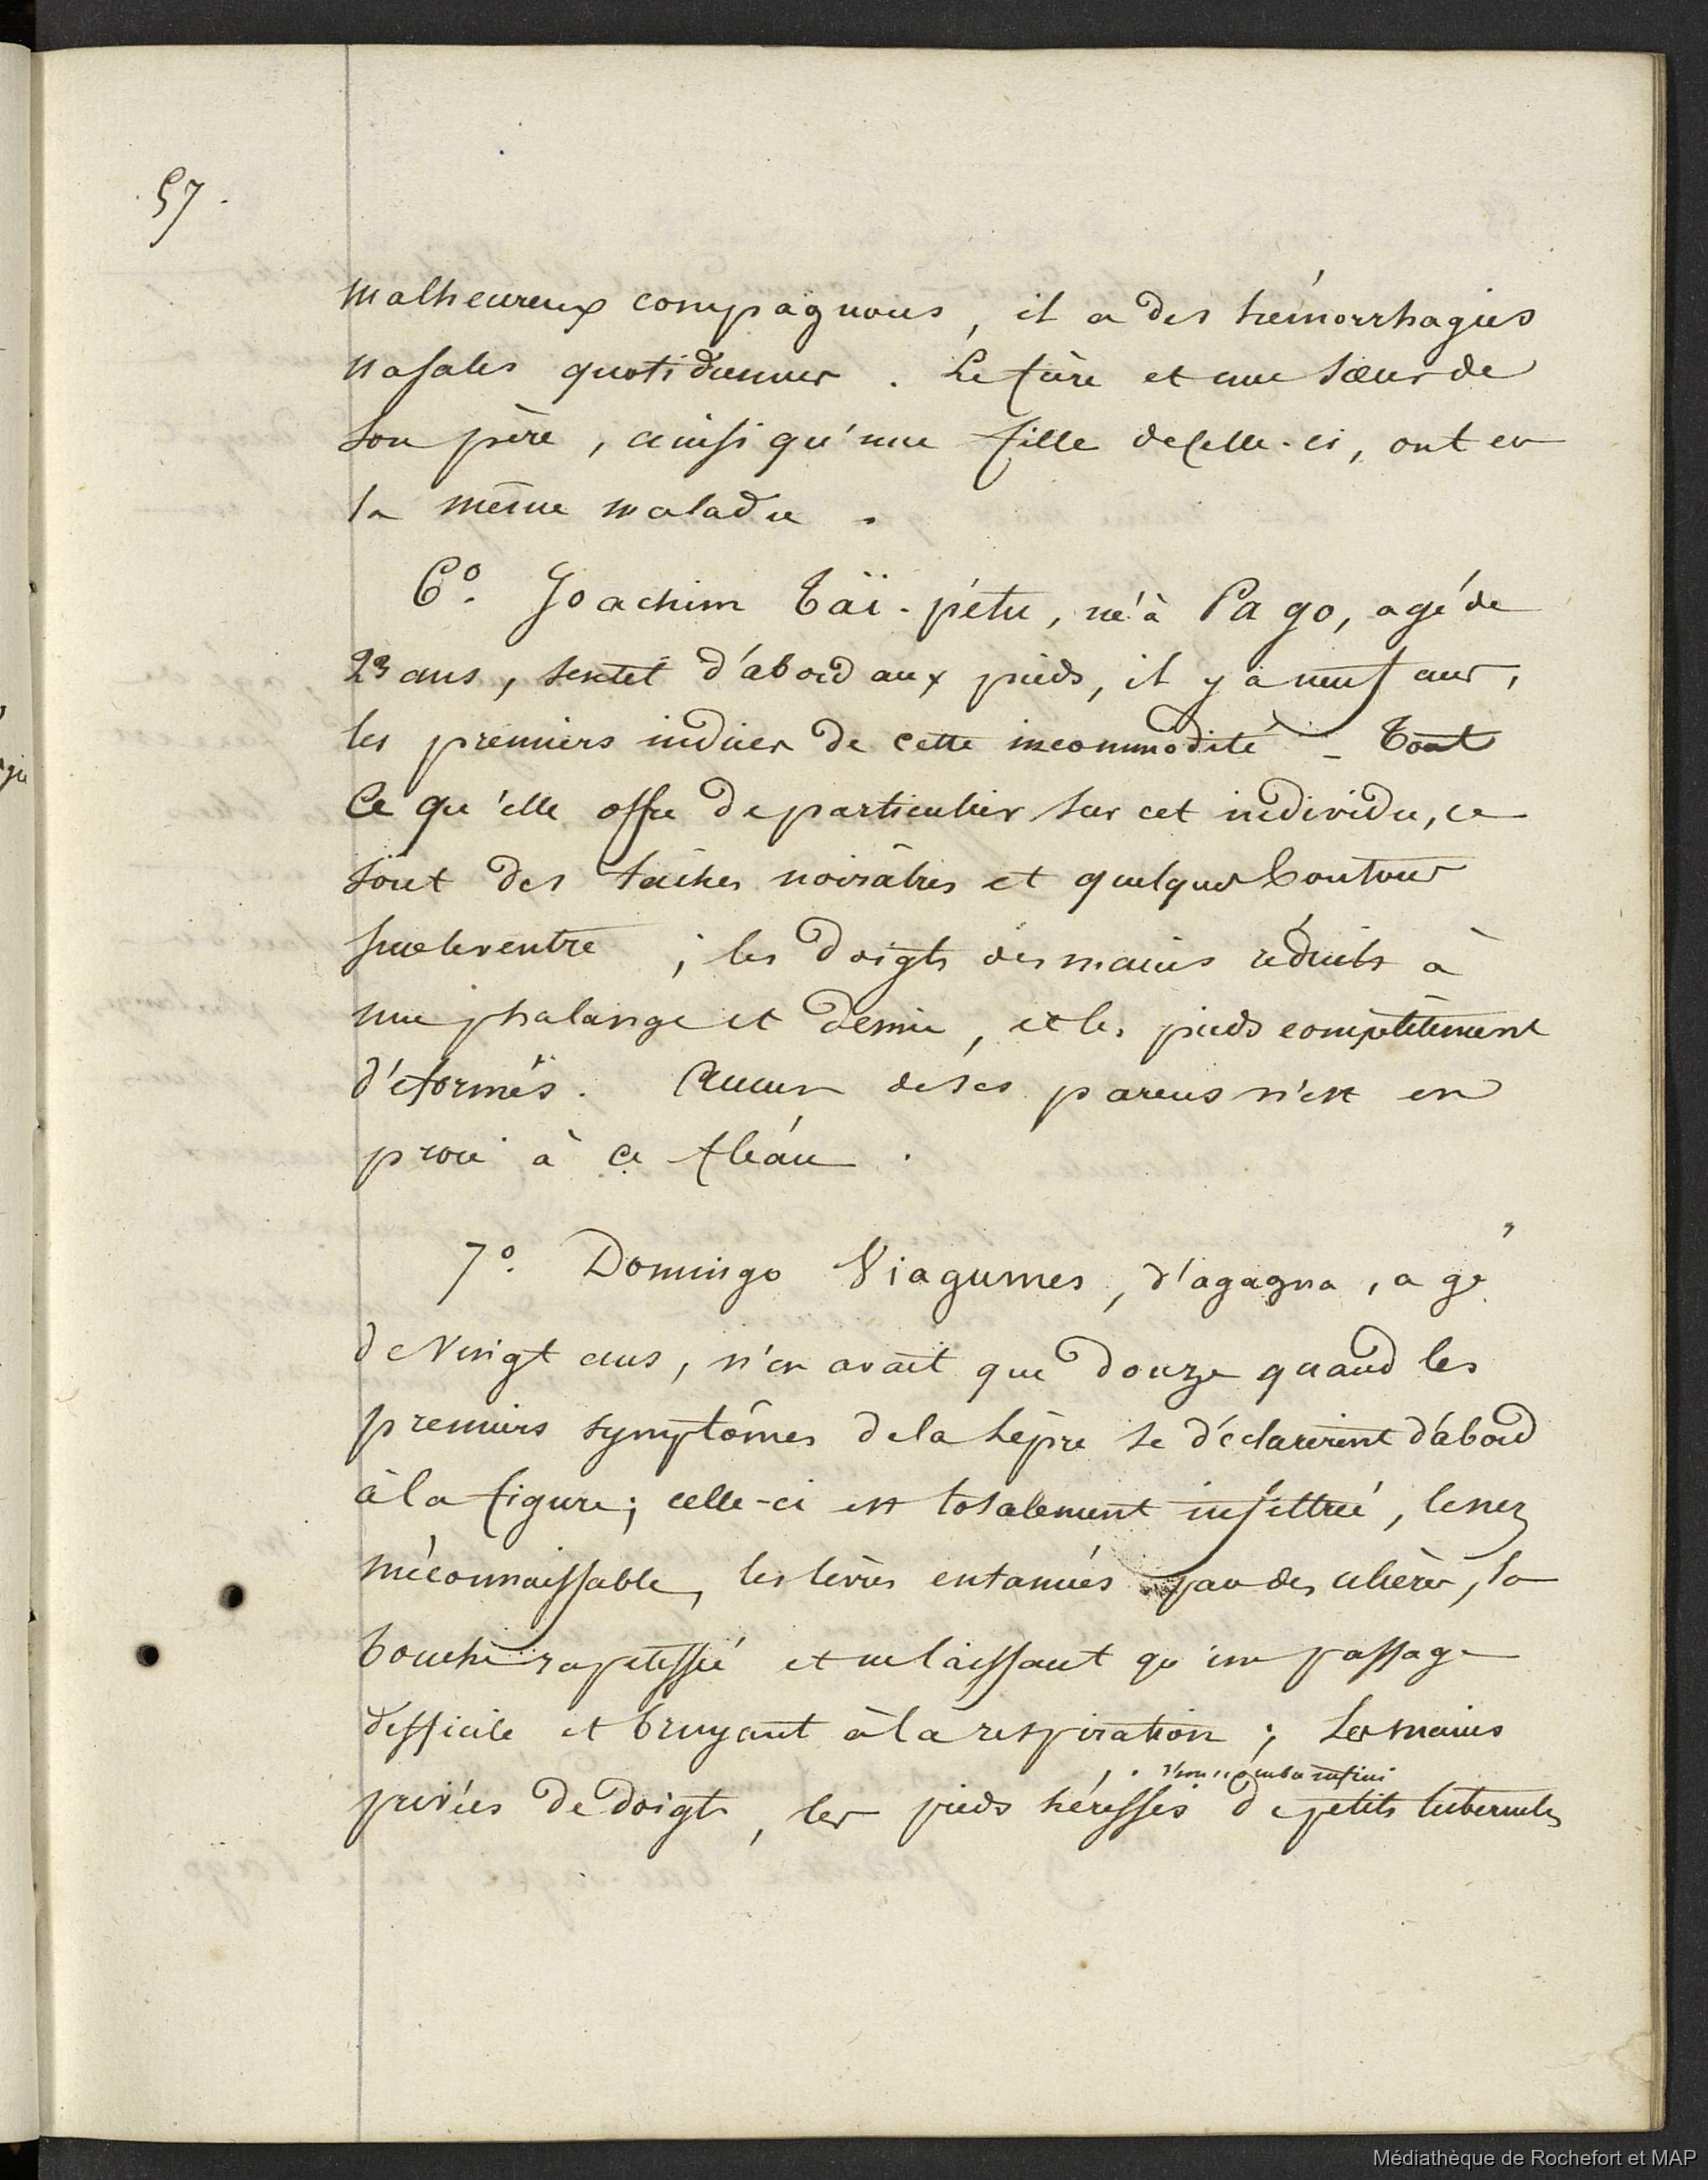 57.
malheureux compagnons, il a des hémorrhagies
nasales quotidiennes. Le frère et une sœur de
son père, ainsi qu'une fille de celle-ci, ont eu
la même maladie.
6º. Joachim Taï-pétu, né à Pago, agé de
23 ans, sentit d'abord aux pieds, il y a neuf ans,
les premiers indices de cette incommodité - Tout
Ce qu'elle offre de particulier sur cet individu, ce
sont des taches noirâtres et quelques boutons
sur le ventre ; les doigts des mains réduits à
une phalange et demie, et les pieds complètement
déformés. Aucun de ses parens n'est en
proie à ce fléau.
7º. Domingo Viagumes, d'agagna, agé
de Vingt ans, n'en avait que douze quand les
premiers symptômes de la lèpre se déclarèrent d'abord
à la figure; celle-ci est totalement infiltrée, le nez
méconnaissable, les lèvres entamées par des ulcères, la
bouche rapetissée et ne laissant qu'un passage
difficile et bruyant à la respiration ; Les mains
d'un nombre infini
privées de doigts, les pieds hérissés de petits tubercules
Médiathèque de Rochefort et MAP